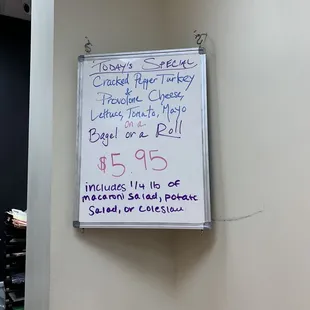 TODAY'S SPECIAL
Cracked Pepper Turkey
&
Provolone Cheese,
Lettuce, Tomato, Mayo
on a
Bagel or a Roll
$5.95
includes 1/4 lb of
macaroni salad, potato
salad, or coleslaw